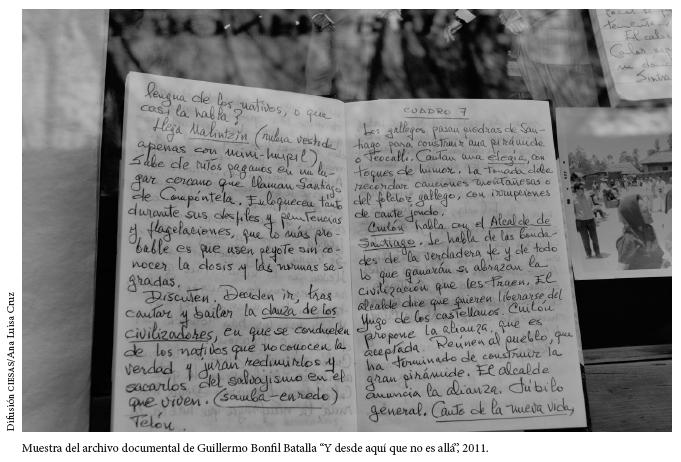 lengua de los nativos, o que
casi la habla?
Llega Malintzin (nueva vestida
apenas con mini-huipil)
Sabe de ritos paganos en un lu-
gar cercano que llaman Santiago
de Compostela. Enloquecen tanto
durante sus desfiles y penitencias
y flagelaciones, que lo más pro-
bable es que usen peyote sin co-
nocer la dosis y las normas sa-
gradas.
Discuten. Deciden ir, tras
cantar y bailar la danza de los
civilizadores, en que se conduelen
de los nativos que no conocen la
verdad y juran redimirlos y
sacarlos del salvajismo en el
que viven. (samba-enredo)
Telón.
CUADRO 7
Los gallegos pasan piedras de San-
tiago para construir una pirámide
o Teocalli. Cantan una elegía, con
toques de humor. La tonada debe
recordar canciones montañesas o
del folclor gallego, con irrupciones
de cante jondo.
Cuilón habla con el Alcalde de
Santiago. Le habla de las bonda-
des de la verdadera fe y de todo
lo que ganarán si abrazan la
civilización que les traen. El
alcalde dice que quieren liberarse del
yugo de los castellanos. Cuilón
propone la alianza, que es
aceptada. Reúnen al pueblo, que
ha terminado de construir la
gran pirámide. El alcalde
anuncia la alianza. Júbilo
general. (Canto de la nueva vida,
Difusión CIESAS/Ana Luisa Cruz
Muestra del archivo documental de Guillermo Bonfil Batalla “Y desde aquí que no es allá”, 2011.